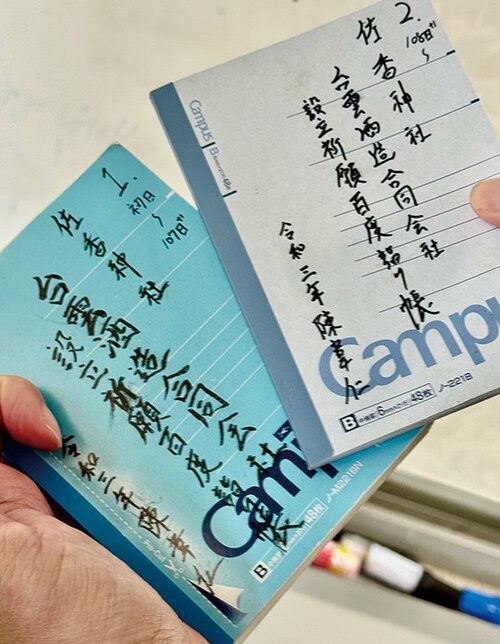 1.
初日〜107日目
佐香神社
台雲酒造合同会社
設立祈願百度詣り帳
令和三年陳韋仁
Campus
B 6mm×
48枚
ノ-M221BN
Pre-Cut
2.
108日目〜
佐香神社
台雲酒造合同会社
設立祈願百度詣り帳
令和三年 陳韋仁
Campus
B
Campus
B 中横罫 6mm× 48枚 ノ-221B